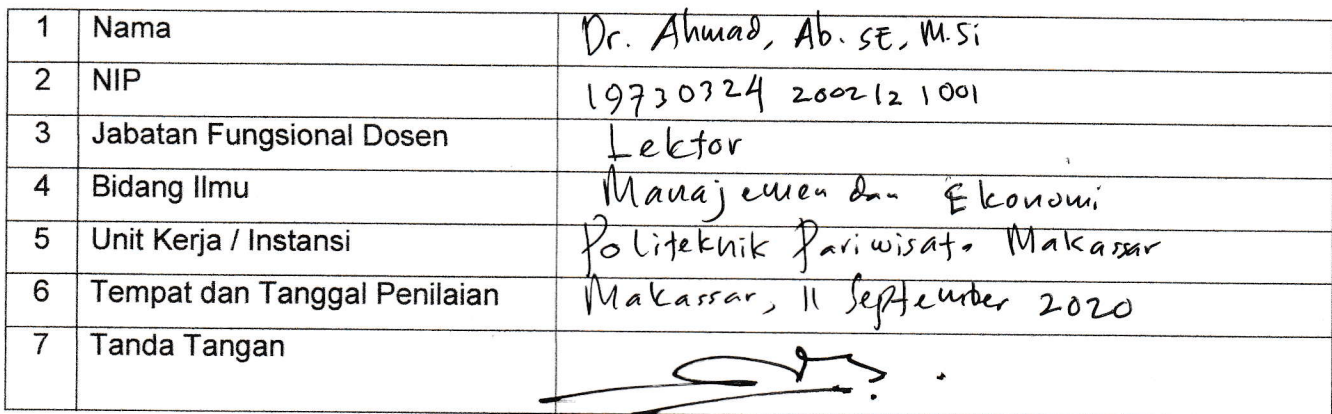 1 Nama Dr. Ahmad, Ab. SE, M.Si
2 NIP 19730324 200212 1 001
3 Jabatan Fungsional Dosen Lektor
4 Bidang Ilmu Manajemen dan Ekonomi
5 Unit Kerja / Instansi Politeknik Pariwisata Makassar
6 Tempat dan Tanggal Penilaian Makassar, 11 September 2020
7 Tanda Tangan